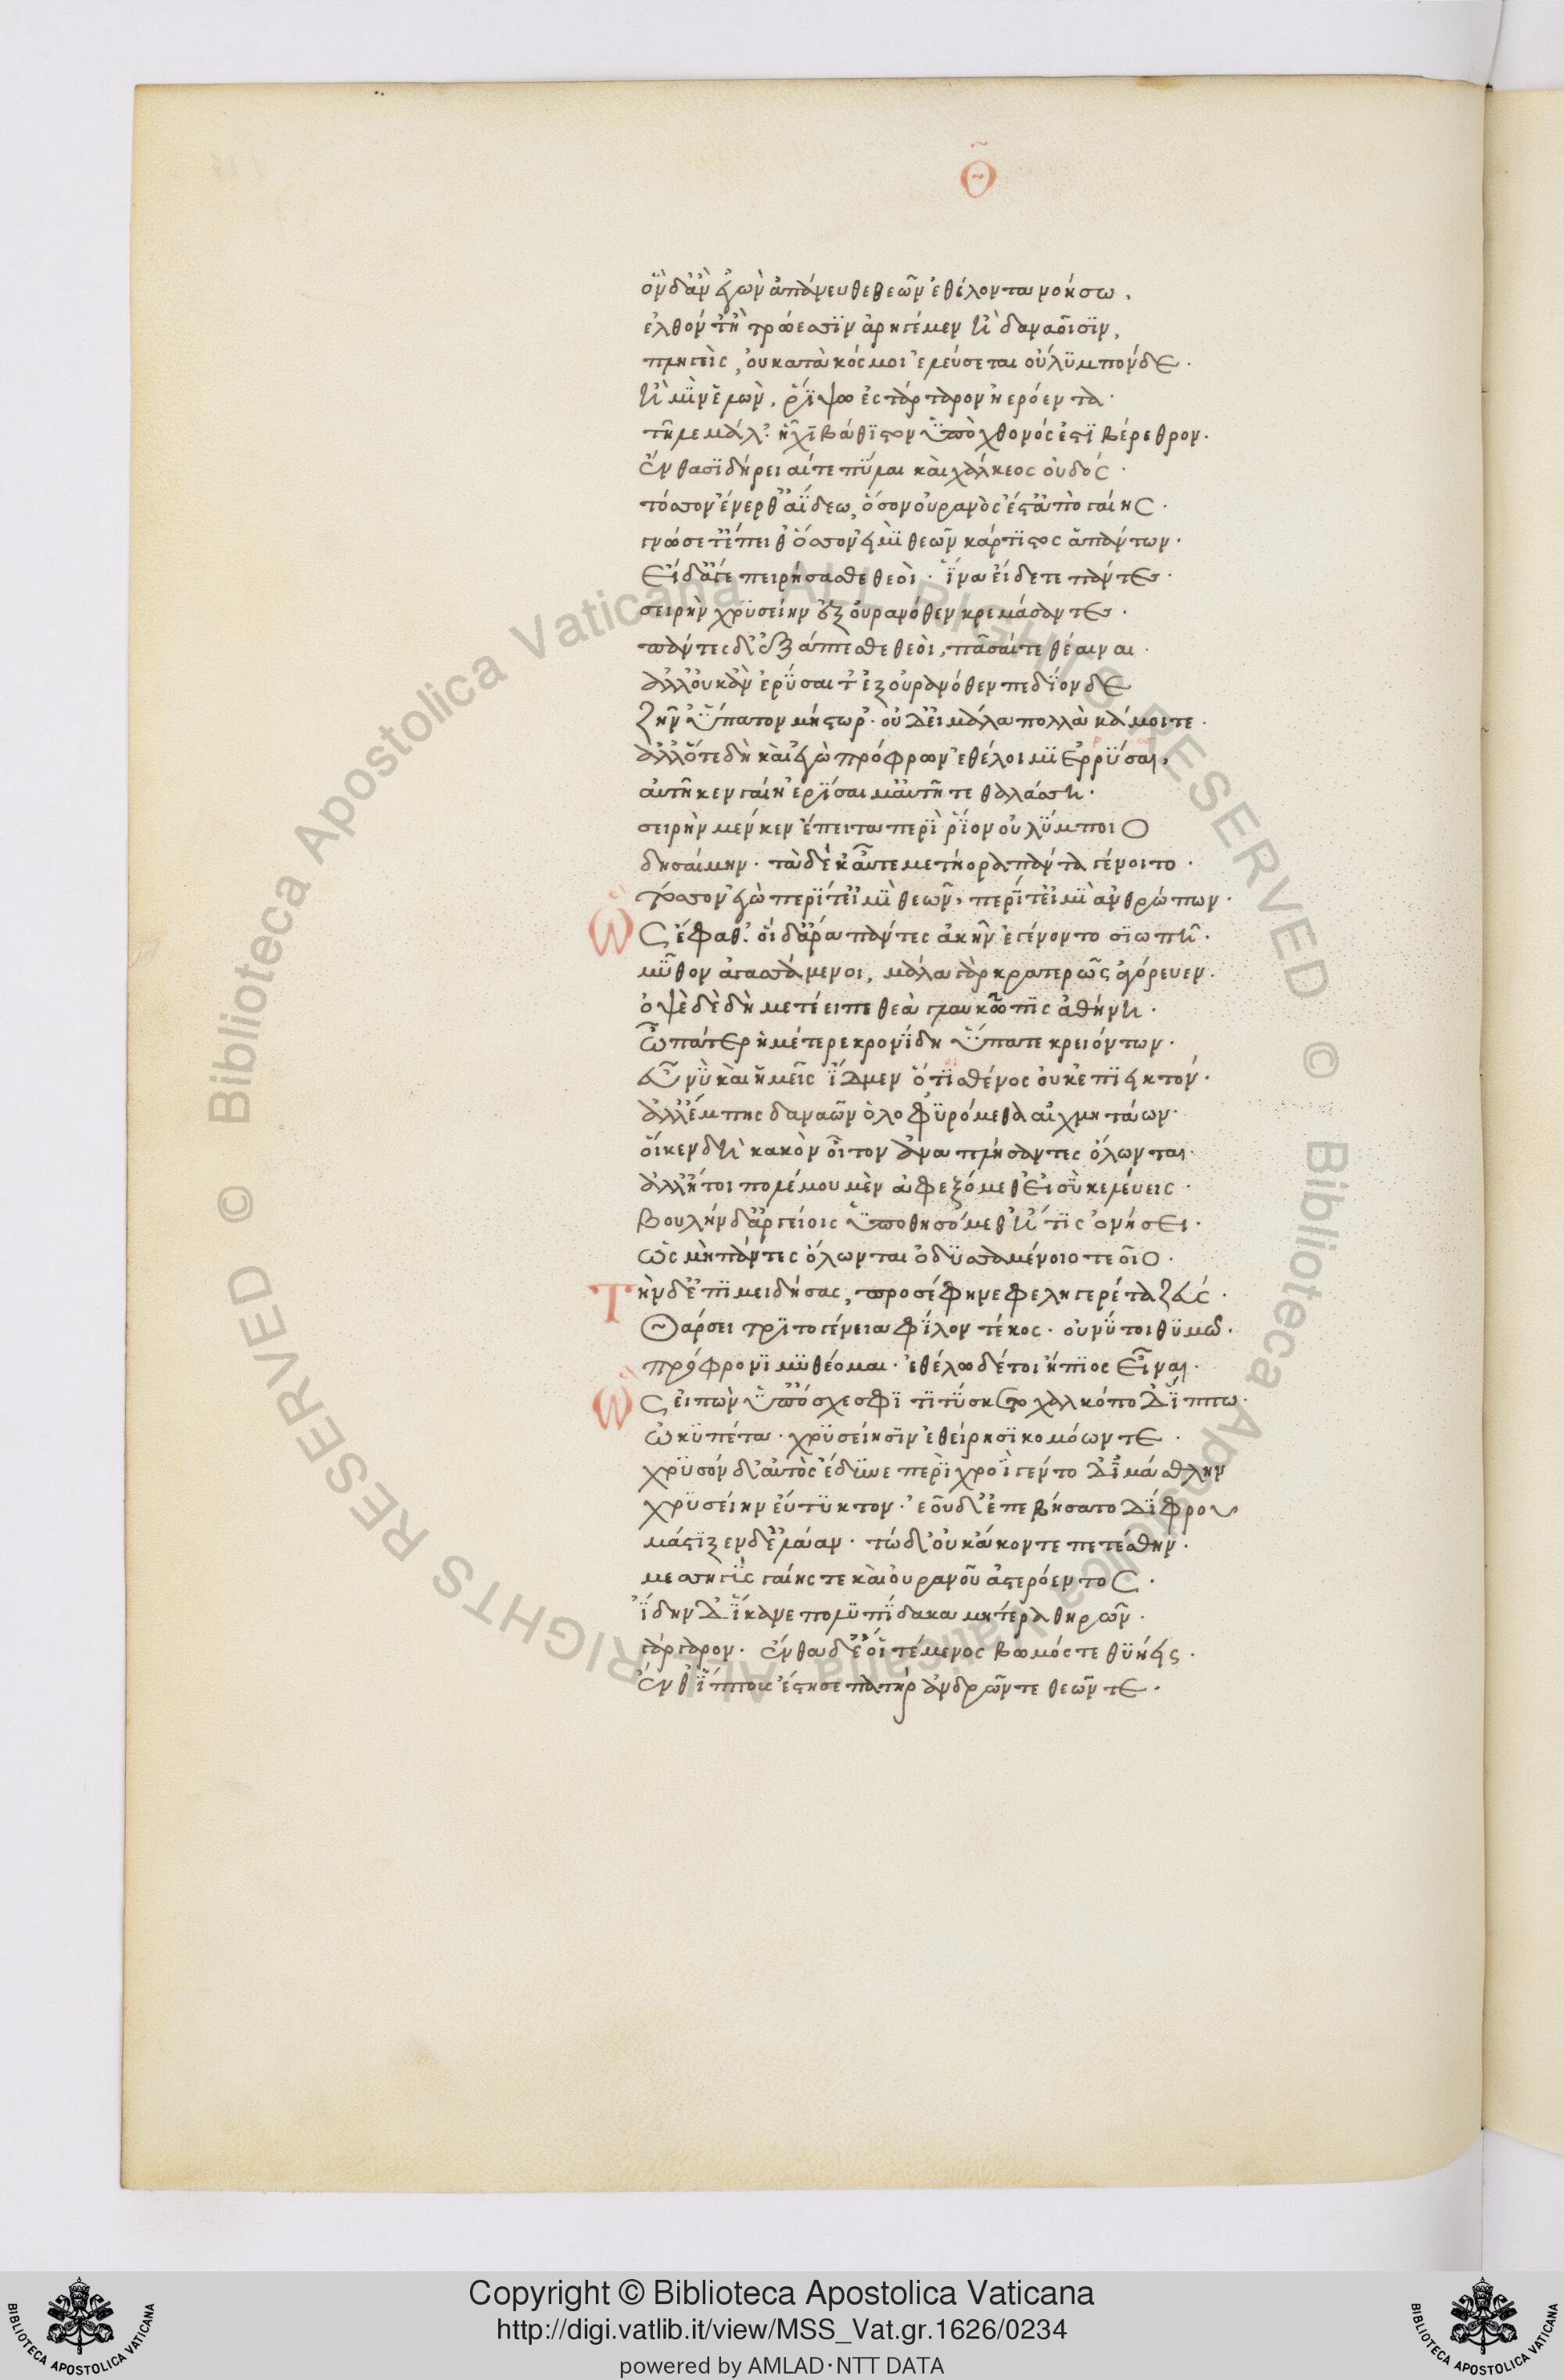 Θ
ὃν δ' ἂν ἐγὼν ἀπάνευθε θεῶν ἐθέλοντα νοήσω,
ἐλθόντ' ἢ τρώεσσιν ἀρηγέμεν ἢ δαναοῖσιν,
πληγεὶς, οὐ κατὰ κόσμον ἐλεύσεται οὔλυμπόνδε·
ἢ μιν ἑλὼν, ῥίψω ἐς τάρταρον ἠερόεντα·
τῆλε μάλ'· ἧχι βάθιστον ὑπὸ χθονός ἐστι βέρεθρον·
ἔνθα σιδήρειαί τε πύλαι καὶ χάλκεος οὐδός·
τόσσον ἔνερθ' ἀΐδεω, ὅσον οὐρανὸς ἔστ' ἀπὸ γαίης·
γνώσετ' ἔπειθ' ὅσσον εἰμὶ θεῶν κάρτιστος ἁπάντων·
Εἰ δ' ἄγε πειρήσασθε θεοὶ· ἵνα εἴδετε πάντες·
σειρὴν χρυσείην ἐξ οὐρανόθεν κρεμάσαντες·
πάντες δ' ἐξάπτεσθε θεοὶ, πᾶσαί τε θέαιναι·
ἀλλ' οὐκ ἂν ἐρύσαιτ' ἐξ οὐρανόθεν πεδίονδε
ζῆν' ὕπατον μήστωρ'· οὐδ' εἰ μάλα πολλὰ κάμοιτε·
ἀλλ' ὅτε δὴ καὶ ἐγὼ πρόφρων ἐθέλοιμι ἐρρύσαι,
αὐτῆ κεν γαίη ἐρύσαιμ' αὐτῆ τε θαλάσση·
σειρὴν μέν κεν ἔπειτα περὶ ῥίον οὐλύμποιο
δησαίμην· τὰ δέ κ' αὖτε μετήορα πάντα γένοιτο·
τόσσον ἐγὼ περί τ' εἰμὶ θεῶν, περί τ' εἰμὶ ἀνθρώπων·
Ὣς ἔφαθ'· οἱ δ' ἄρα πάντες ἀκὴν ἐγένοντο σιωπῆ·
μῦθον ἀγασσάμενοι, μάλα γὰρ κρατερῶς ἀγόρευεν·
ὀψὲ δὲ δὴ μετέειπε θεὰ γλαυκῶπις ἀθήνη·
ὦ πάτερ ἡμέτερε κρονίδη ὕπατε κρειόντων·
εὖ νυ καὶ ἡμεῖς ἴδμεν ὅ τι σθένος οὐκ ἐπιεικτόν·
ἀλλ' ἔμπης δαναῶν ὀλοφυρόμεθα αἰχμητάων·
οἵ κεν δὴ κακὸν οἶτον ἀναπλήσαντες ὄλωνται·
ἀλλ' ἤτοι πολέμου μὲν ἀφεξόμεθ' εἰ σὺ κελεύεις·
βουλὴν δ' ἀργείοις ὑποθησόμεθ' ἥ τις ὀνήσει·
ὡς μὴ πάντες ὄλωνται ὀδυσσαμένοιο τεοῖο·
Τὴν δ' ἐπιμειδήσας, προσέφη νεφεληγερέτα ζεύς·
Θάρσει τριτογένεια φίλον τέκος· οὔ νύ τοι θυμῶ·
πρόφρονι μυθέομαι· ἐθέλω δέ τοι ἤπιος εἶναι·
Ὣς εἰπὼν ὑπ' ὄχεσφι τιτύσκετο χαλκόποδ' ἵππω·
ὠκυπέτα· χρυσέησιν ἐθείρησι κομόωντε·
χρυσόν δ' αὐτὸς ἔδυνε περὶ χροΐ γέντο δ' ἱμάσθλην
χρυσείην εὔτυκτον· ἑοῦ δ' ἐπεβήσατο δίφρου
μάστιξεν δ' ἐλάαν· τὼ δ' οὐκ ἄκοντε πετέσθην·
μεσσηγὺς γαίης τε καὶ οὐρανοῦ ἀστερόεντος·
ἴδην δ' ἵκανε πολυπίδακα μητέρα θηρῶν·
γάργαρον· ἔνθα δέ οἱ τέμενος βωμός τε θυήεις·
ἔνθ' ἵππους ἔστησε πατὴρ ἀνδρῶν τε θεῶν τε·
Copyright © Biblioteca Apostolica Vaticana
http://digi.vatlib.it/view/MSS_Vat.gr.1626/0234
powered by AMLAD·NTT DATA